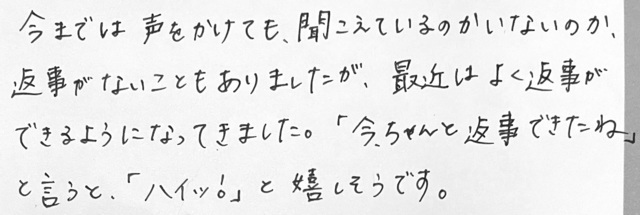 今までは声をかけても、聞こえているのかいないのか、
返事がないこともありましたが、最近はよく返事が
できるようになってきました。「今、ちゃんと返事できたね」
と言うと、「ハイッ!」と嬉しそうです。